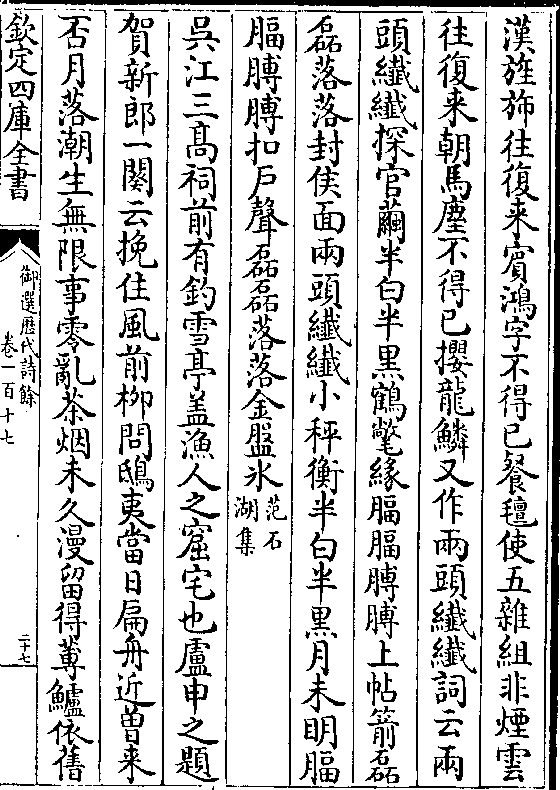 漢旌斾往復来賓鴻字不得已餐氊使五雜組非煙雲
往復来朝馬塵不得已攖龍鱗又作兩頭纖纖詞云兩
頭纖纖探官繭半白半黒鶴氅緣腷腷膊膊上帖箭磊
磊落落封侯面兩頭纖纖小秤衡半白半黒月未明腷
腷膊膊扣戶聲磊磊落落金盤氷范石湖集
吳江三髙祠前有釣雪亭蓋漁人之窟宅也盧申之題
賀新郎一闋云挽住風前栁問鴟夷當日扁舟近曽来
否月落潮生無限事零亂茶烟未久漫留得蓴鱸依舊
欽定四庫全書
御選歴代詩餘
卷一百十七
二十七